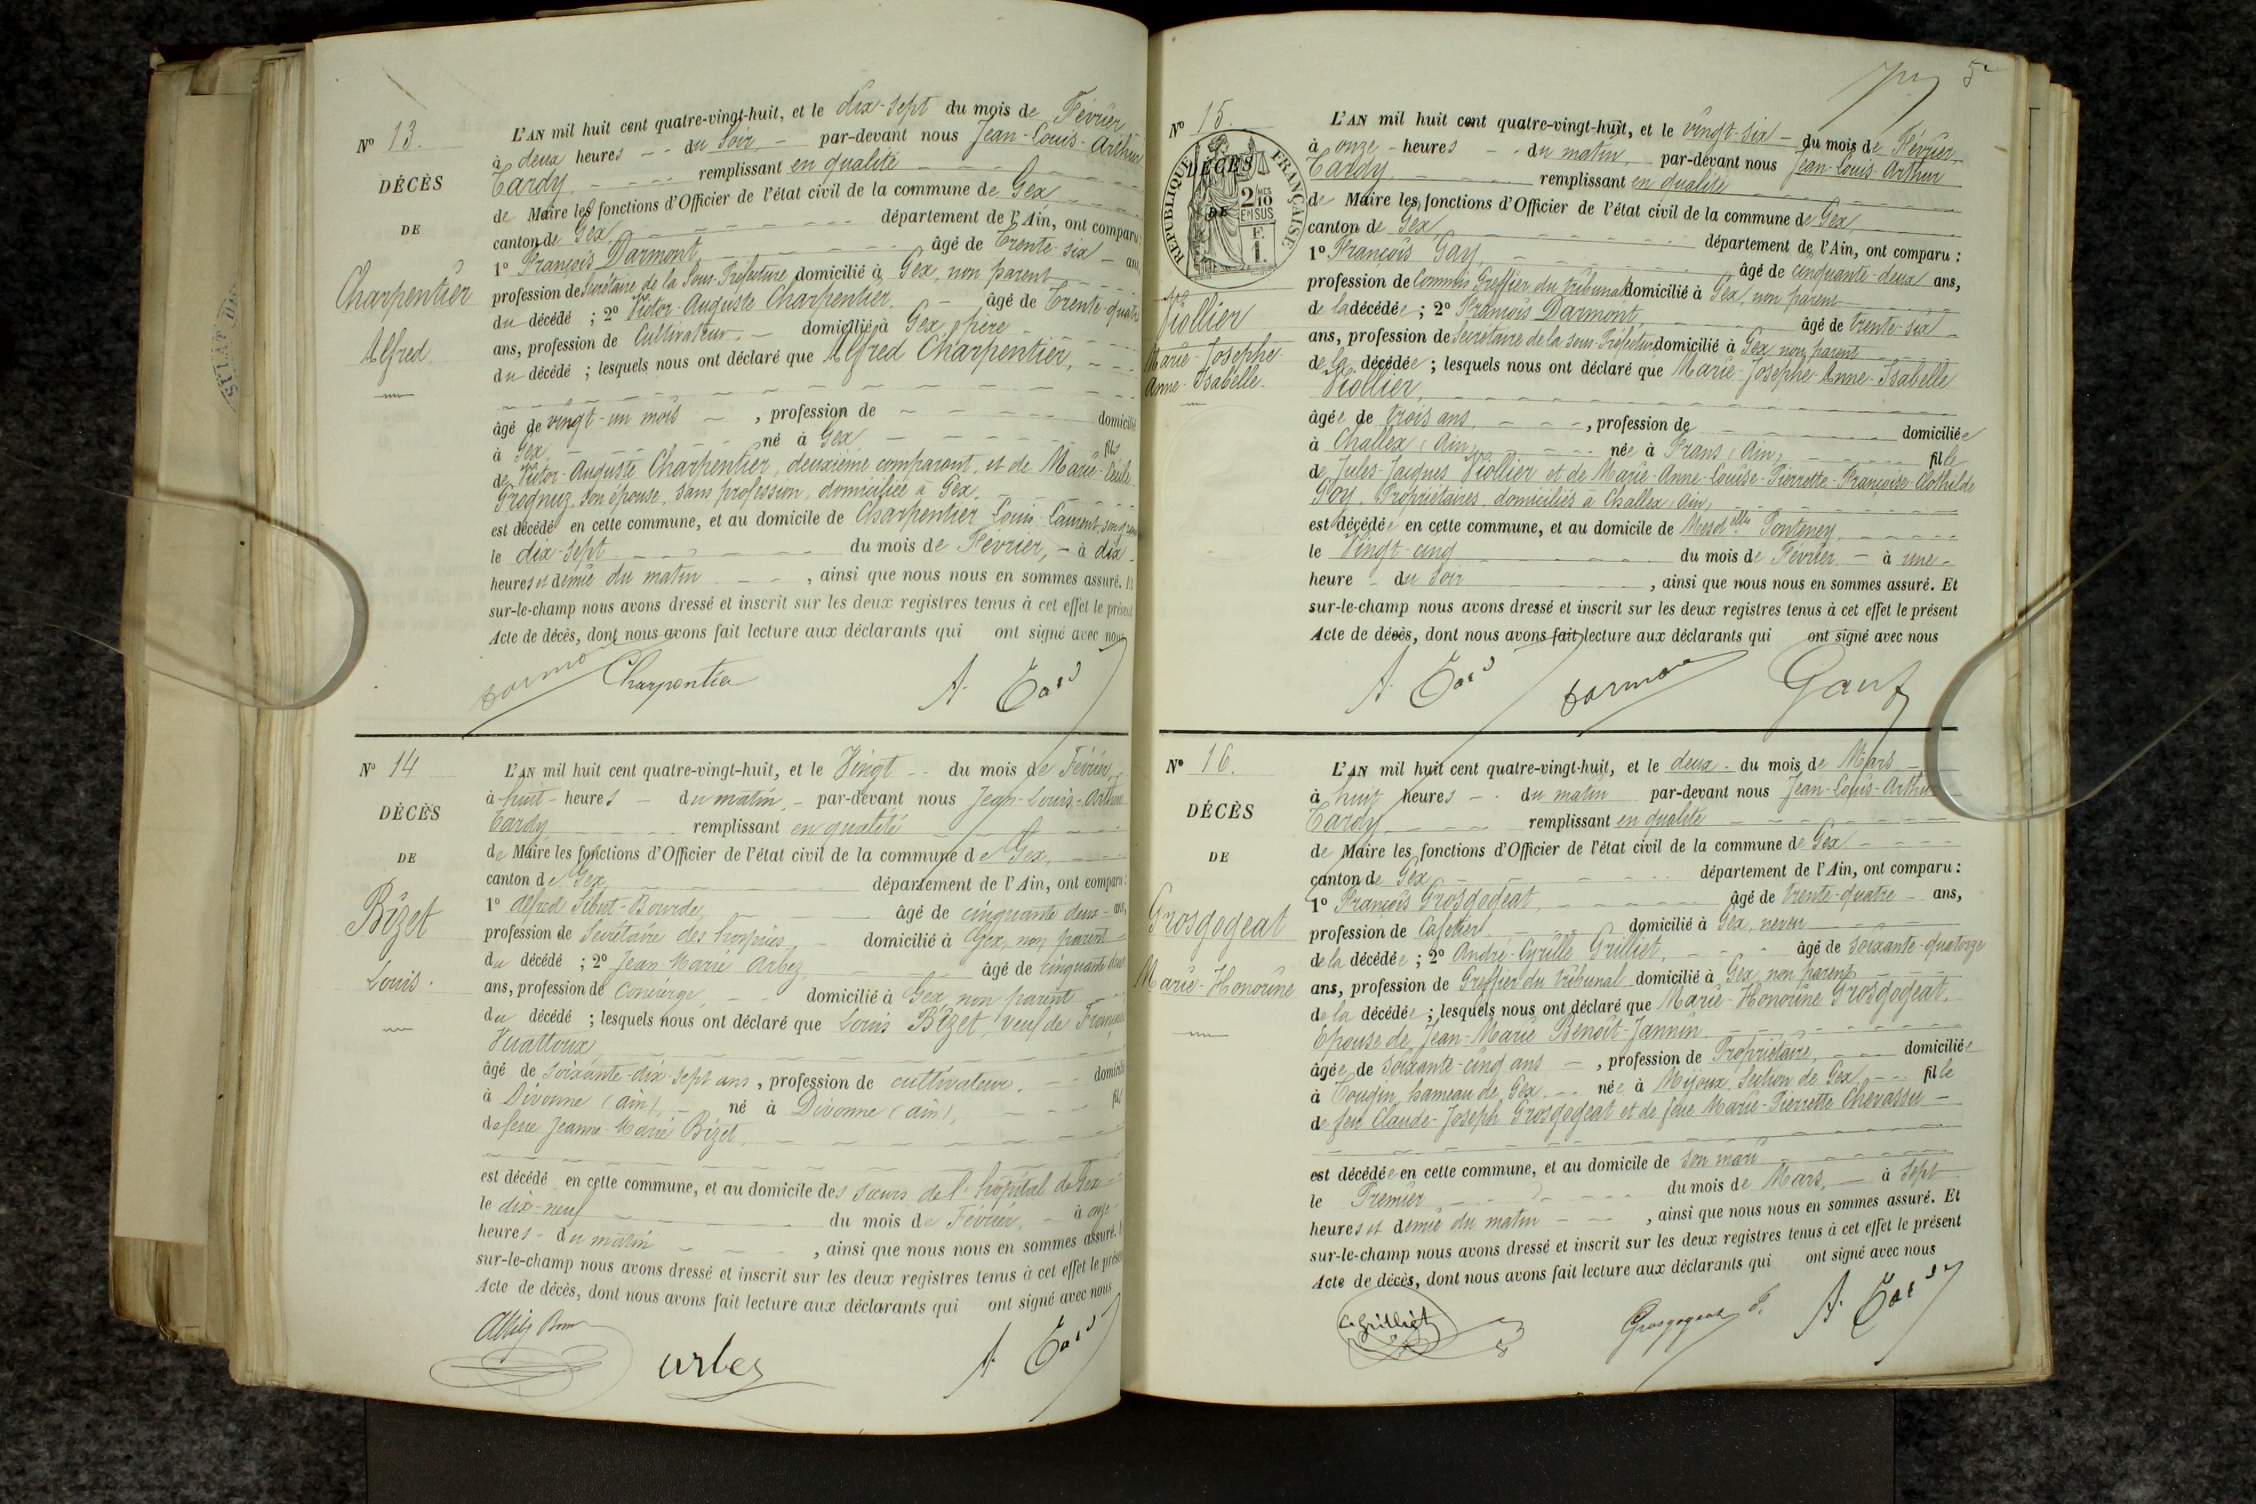 N° 13.
DÉCÈS
DE
Charpentier
Alfred.
L'AN mil huit cent quatre-vingt-huit, et le dix-sept du mois de Février
à deux heures du soir par-devant nous Jean-Louis-Arthur
Tardy remplissant en qualité
de Maire les fonctions d'Officier de l'état civil de la commune de Gex
canton de Gex département de l'Ain, ont comparu :
1° François Darmont âgé de trente-six ans,
profession de Secrétaire de la Sous-Préfecture domicilié à Gex, non parent
du décédé ; 2° Victor-Auguste Charpentier âgé de trente-quatre
ans, profession de Cultivateur domicilié à Gex, père
du décédé ; lesquels nous ont déclaré que Alfred Charpentier,
âgé de vingt-un mois, profession de domicilié
à Gex, né à Gex fils
de Victor-Auguste Charpentier, deuxième comparant, et de Marie-Cécile
son épouse, sans profession, domiciliée à Gex.
est décédé en cette commune, et au domicile de Charpentier Louis Laurent
le dix-sept du mois de Février, à dix
heures et demie du matin, ainsi que nous nous en sommes assuré. Et
sur-le-champ nous avons dressé et inscrit sur les deux registres tenus à cet effet le présent
Acte de décès, dont nous avons fait lecture aux déclarants qui ont signé avec nous
Darmont Charpentier A. Tardy
N° 14
DÉCÈS
DE
Bizet
Louis.
L'AN mil huit cent quatre-vingt-huit, et le Vingt du mois de Février,
à huit heures du matin, par-devant nous Jean-Louis-Arthur
Tardy remplissant en qualité
de Maire les fonctions d'Officier de l'état civil de la commune de Gex,
canton de Gex département de l'Ain, ont comparu :
1° Alfred âgé de cinquante deux ans,
profession de Secrétaire des hospices, domicilié à Gex, non parent
du décédé ; 2° Jean-Marie Arbez âgé de cinquante
ans, profession de Concierge, domicilié à Gex, non parent
du décédé ; lesquels nous ont déclaré que Louis Bizet, veuf de Françoise
Vuattoux
âgé de soixante-dix-sept ans, profession de cultivateur, domicilié
à Divonne (Ain), né à Divonne (Ain), fils
de feue Jeanne-Marie Bizet.
est décédé en cette commune, et au domicile des sœurs de l'hôpital de Gex
le dix-neuf du mois de Février, à onze
heures du matin, ainsi que nous nous en sommes assuré. Et
sur-le-champ nous avons dressé et inscrit sur les deux registres tenus à cet effet le présent
Acte de décès, dont nous avons fait lecture aux déclarants qui ont signé avec nous
Arbez A. Tardy
5
N° 15.
RÉPUBLIQUE FRANÇAISE
2 10MES
EN SUS
F.
1.
DÉCÈS
DE
Viollier
Marie-Josephe
Anne-Isabelle.
L'AN mil huit cent quatre-vingt-huit, et le vingt-six du mois de Février,
à onze heures du matin, par-devant nous Jean-Louis-Arthur
Tardy remplissant en qualité
de Maire les fonctions d'Officier de l'état civil de la commune de Gex,
canton de Gex département de l'Ain, ont comparu :
1° François Gay, âgé de cinquante-deux ans,
profession de Commis Greffier du tribunal domicilié à Gex, non parent
de la décédée ; 2° François Darmont, âgé de trente-six
ans, profession de Secrétaire de la sous-Préfecture domicilié à Gex, non parent
de la décédée ; lesquels nous ont déclaré que Marie-Josephe-Anne-Isabelle
Viollier,
âgée de trois ans, profession de domiciliée
à Challex (Ain) née à Prans (Ain) fille
de Jules-Jacques Viollier et de Marie-Anne-Louise-Pierrette-Françoise-Clothilde
Goy, Propriétaires, domiciliés à Challex (Ain)
est décédée en cette commune, et au domicile de Mesdelles Ponteney
le Vingt-cinq du mois de Février à une
heure du soir, ainsi que nous nous en sommes assuré. Et
sur-le-champ nous avons dressé et inscrit sur les deux registres tenus à cet effet le présent
Acte de décès, dont nous avons fait lecture aux déclarants qui ont signé avec nous
A. Tardy Darmont Gay
N° 16.
DÉCÈS
DE
Grosgogeat
Marie-Honorine
L'AN mil huit cent quatre-vingt-huit, et le deux du mois de Mars
à huit heures du matin par-devant nous Jean-Louis-Arthur
Tardy remplissant en qualité
de Maire les fonctions d'Officier de l'état civil de la commune de Gex
canton de Gex département de l'Ain, ont comparu :
1° François Grosgogeat, âgé de trente-quatre ans,
profession de Cafetier domicilié à Gex, neveu
de la décédée ; 2° André-Cyrille Grilliet, âgé de soixante-quatorze
ans, profession de Greffier du tribunal domicilié à Gex, non parent
de la décédée ; lesquels nous ont déclaré que Marie-Honorine Grosgogeat,
Epouse de Jean-Marie Benoît-Jannin
âgée de soixante-cinq ans, profession de Propriétaire, domiciliée
à Tougin, hameau de Gex née à Mijoux, Section de Gex fille
de feu Claude-Joseph Grosgogeat et de feue Marie-Pierrette Chevassu
est décédée en cette commune, et au domicile de son mari
le Premier du mois de Mars, à sept
heures et demie du matin, ainsi que nous nous en sommes assuré. Et
sur-le-champ nous avons dressé et inscrit sur les deux registres tenus à cet effet le présent
Acte de décès, dont nous avons fait lecture aux déclarants qui ont signé avec nous
C. Grilliet Grosgogeat F. A. Tardy